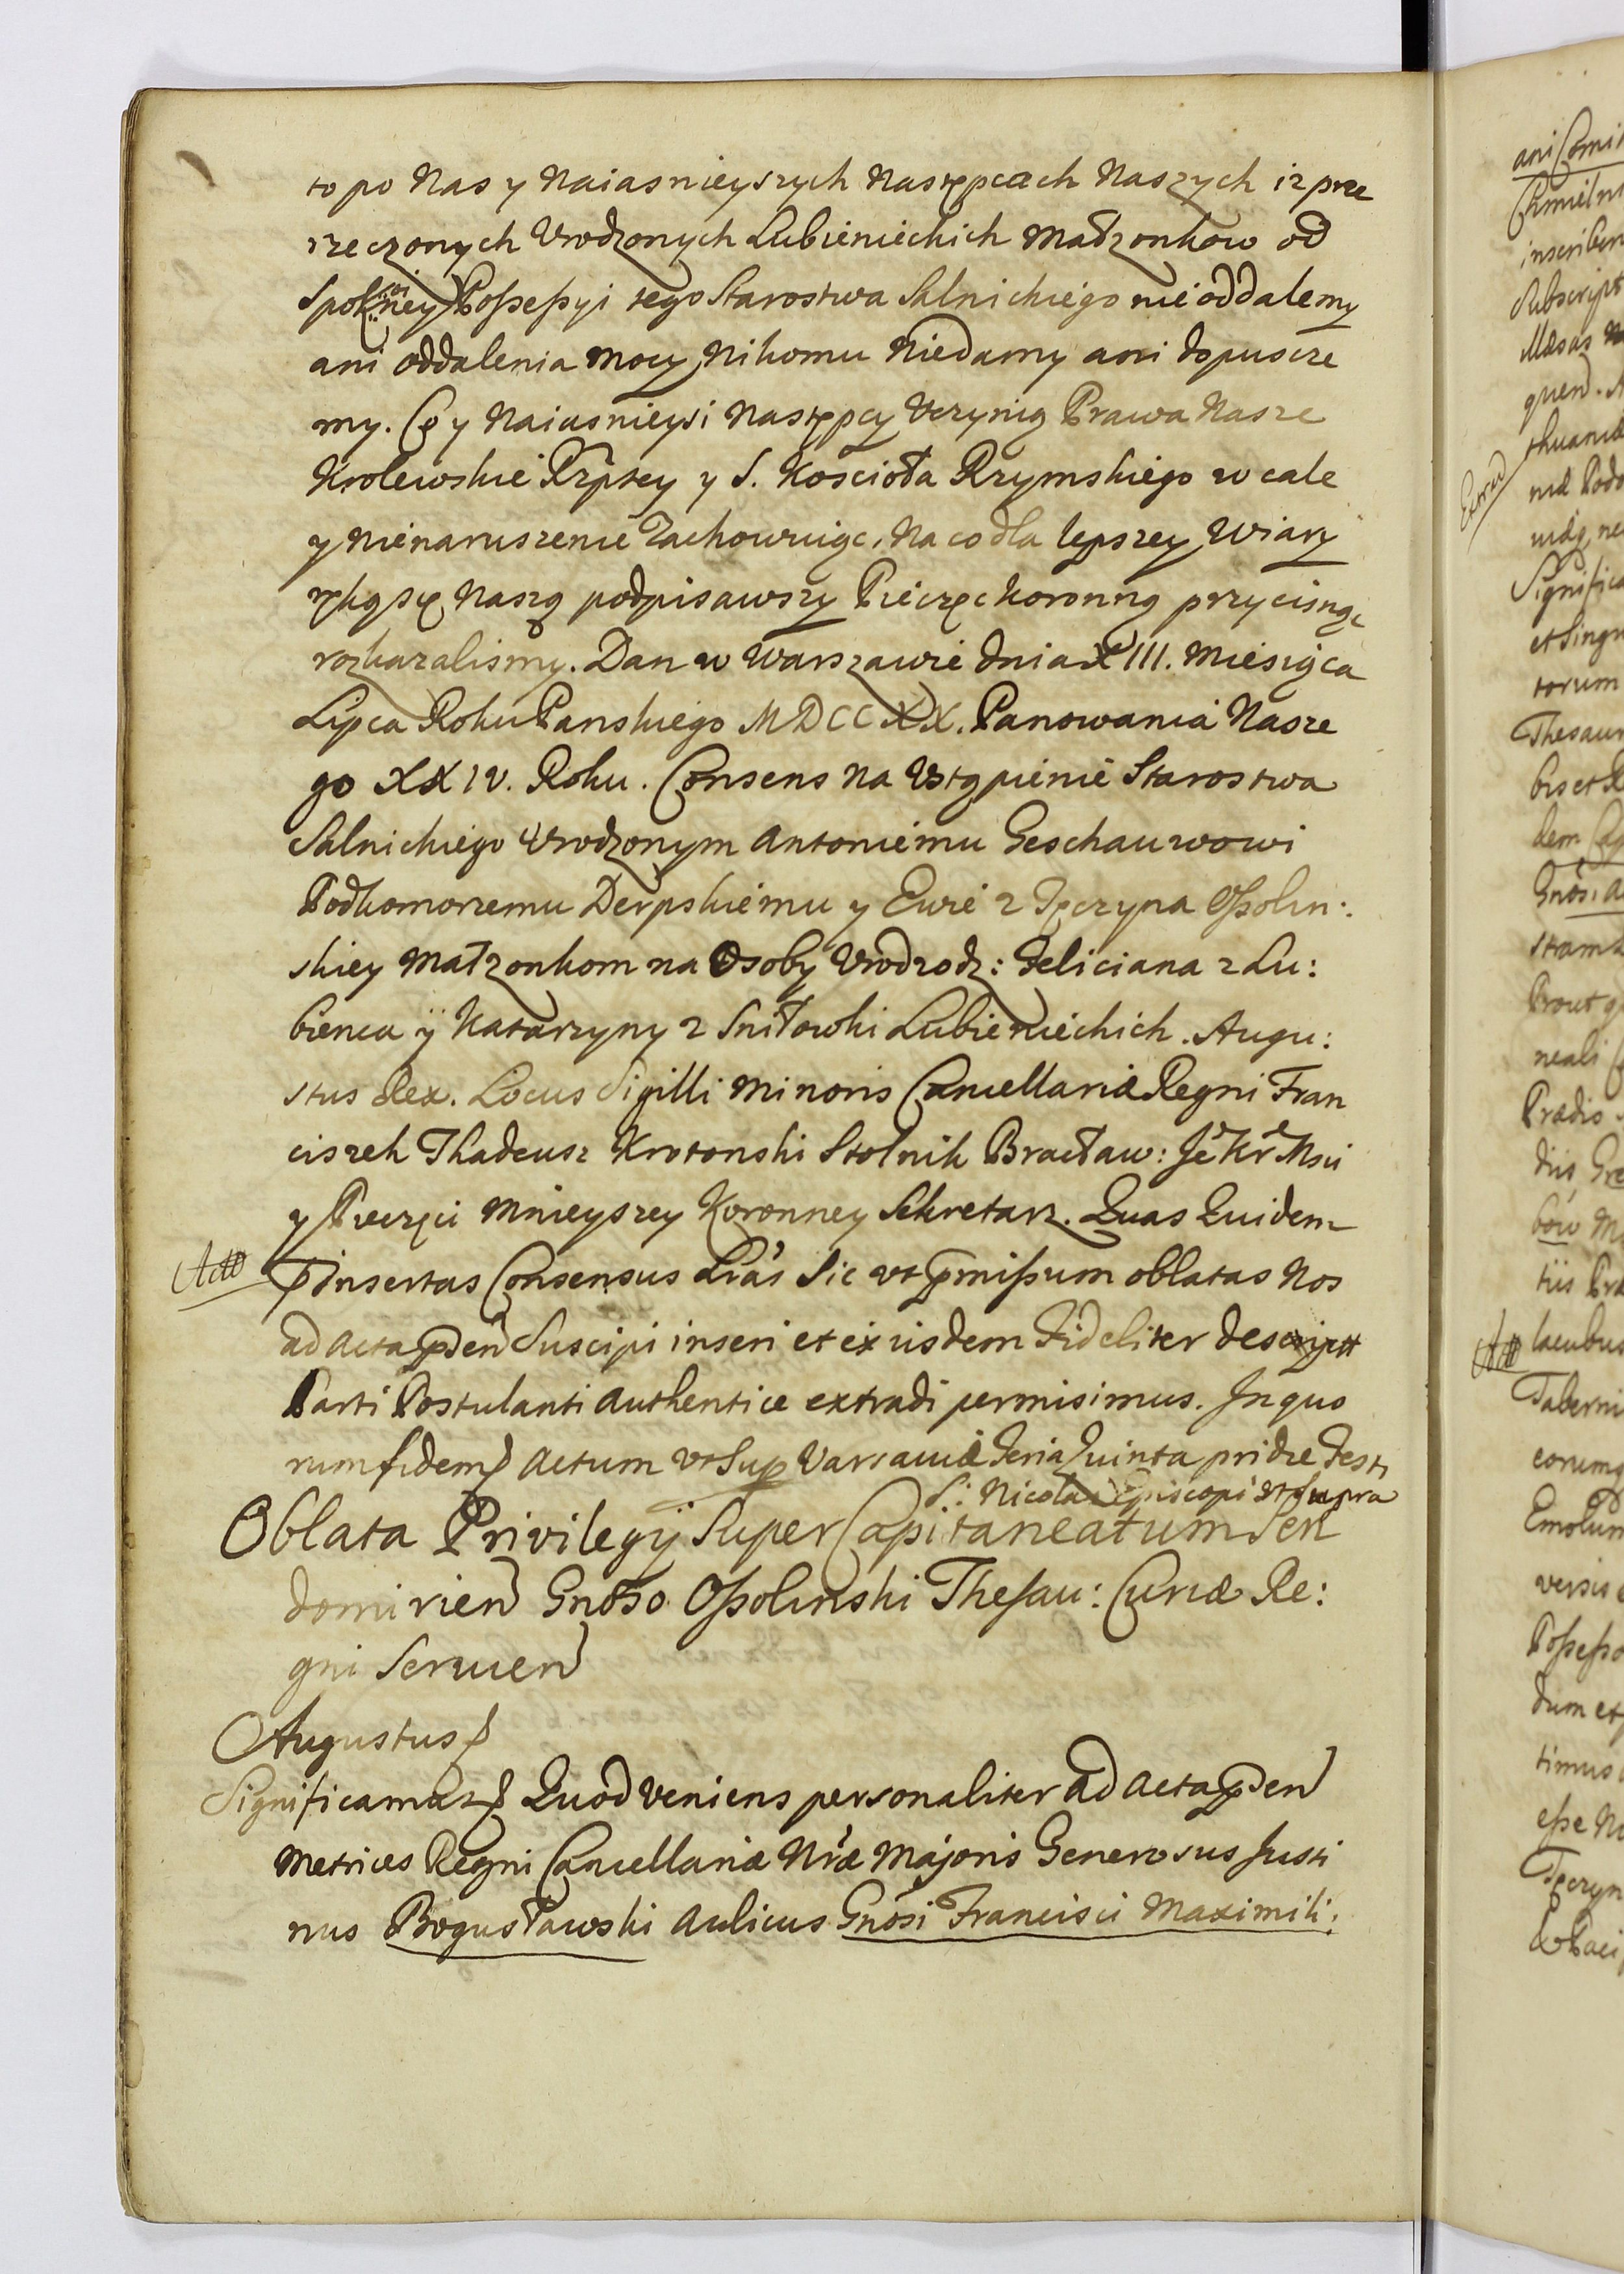 to po Nas y Naiasnieyszych Następcach Naszych iz prze
rzeczonych Vrodzonych Lubienieckich Małzonkow od
Spokoiney Possessyi tego Starostwa Salnickiego nie oddalemy
ani oddalenia mocy Nikomu Niedamy ani dopuscze
my. Co y Naiasnieysi Następcy Vczynią Prawa Nasze
Krolewskie Rzptey y S. Koscioła Rzymskiego w cale
y nienaruszenie Zachowuiąc. Na co dla lepszey Wiary
ręką się Naszą podpisawszy Pieczęc koronną przycisnąc
rozkazalismy. Dan w Warszawie dnia XIII. Miesiąca
Lipca Roku Panskiego MDCCXX. Panowania Nasze
go XXIV. Roku. Consens na Vstąpienie Starostwa
Salnickiego Vrodzonym Antoniemu Geschauwowi
Podkomorzemu Derpskiemu y Ewie z Tęczyna Ossolin:
skiey Małzonkom na Osoby Vrodzodz: Feliciana z Lu:
bienca ÿ Katarzyny z Sniłowki Lubienieckich. Augu:
stus Rex. Locus Sigilli Minoris Cancellariæ Regni Fran
ciszek Thadeusz Krotonski Stolnik Bracław: Je Kr Msci
y Pieczęci Mnieyszey Koronney Sekretarz. Quas Quidem
Act
p̄insertas Consensus Lrās Sic vt p̄missum oblatas Nos
ad Acta p̄sen Suscipi inseri et ex iisdem Fideliter descriptt
Parti Postulanti Authentice extradi permisimus. In quo
rum fidem Actum vt Sup Varsauiæ Feria Quinta pridie Festi
S: Nicolai Episcopi vt Supra
Oblata Privilegij Super Capitaneatum Sen
domirien Gnoso Ossolinski Thesau: Curiæ Re:
gni Seruien
Augustus
Significamus Quod veniens personaliter ad Acta p̄sen
Metrices Regni Cancellariæ Nræ Majoris Generosus Justi
nus Bogusławski Aulicus Gnosi Francisci Maximili:
ani Comi
Chmieln
inscriben
Subscript
quen.
Extrad
Significa
et Singu
torum
Thesaur
dem Cap
Gnosi
Prout
neali
Prædis
Act
lacubus
Tabern
eorumq
Emolum
versis
Possesso
dum et
timus
esse No
Tęczyn